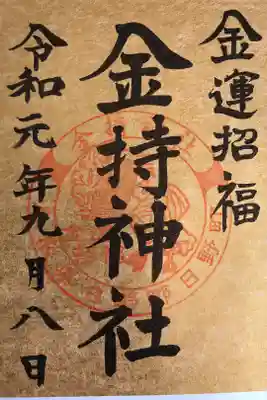 金運招福
金持神社
令和元年九月八日